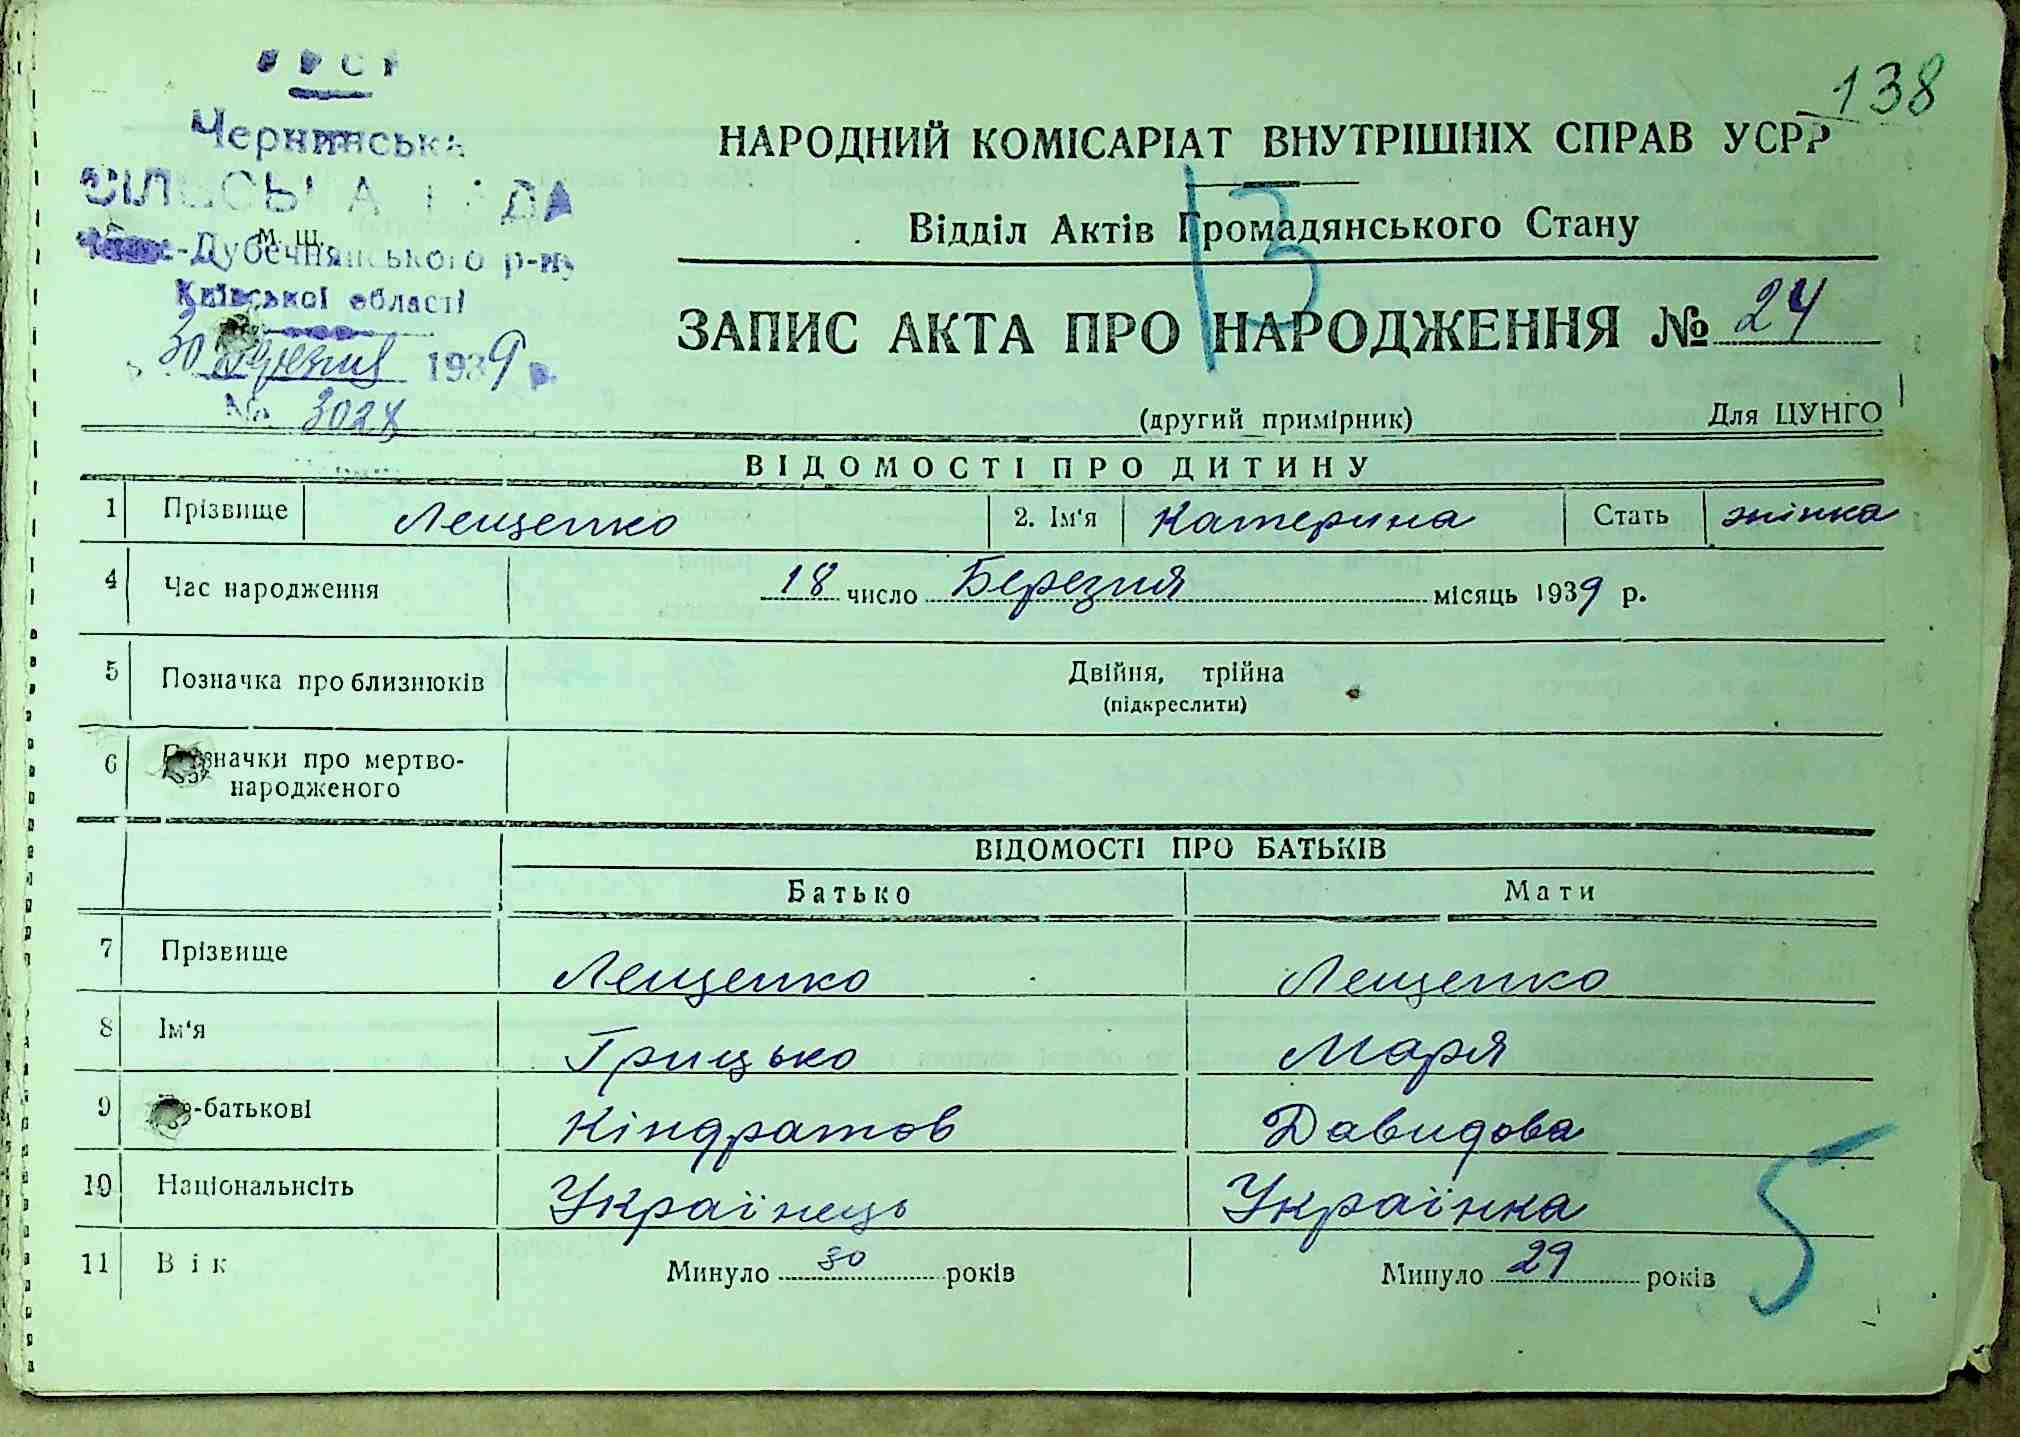 УРСР
138
Чернинська
СІЛЬСЬКА РАДА
НАРОДНИЙ КОМІСАРІАТ ВНУТРІШНІХ СПРАВ УСРР
М. Ш.
-Дубечнянського р-ну
13
Відділ Актів Громадянського Стану
Київської області
ЗАПИС АКТА ПРО НАРОДЖЕННЯ № 24
30 березня 1939 р.
№ 3028
(другий примірник) Для ЦУНГО
ВІДОМОСТІ ПРО ДИТИНУ
1 Прізвище Лещенко 2. Ім'я Катерина Стать жінка
4 Час народження 18 число Березня місяць 1939 р.
5 Позначка про близнюків Двійня, трійна
(підкреслити)
6 Позначки про мертво-
народженого
ВІДОМОСТІ ПРО БАТЬКІВ
Батько Мати
7 Прізвище Лещенко Лещенко
8 Ім'я Грицько Маря
9 По-батькові Кіндратов Давидова
10 Національнсіть Українець Українка
11 Вік Минуло 30 років Минуло 29 років
5